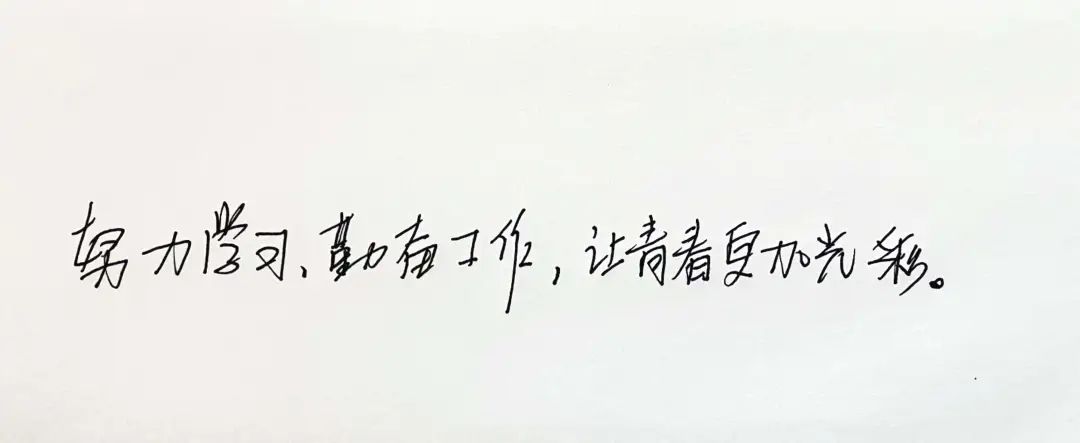 努力学习、勤奋工作,让青春更加光彩。